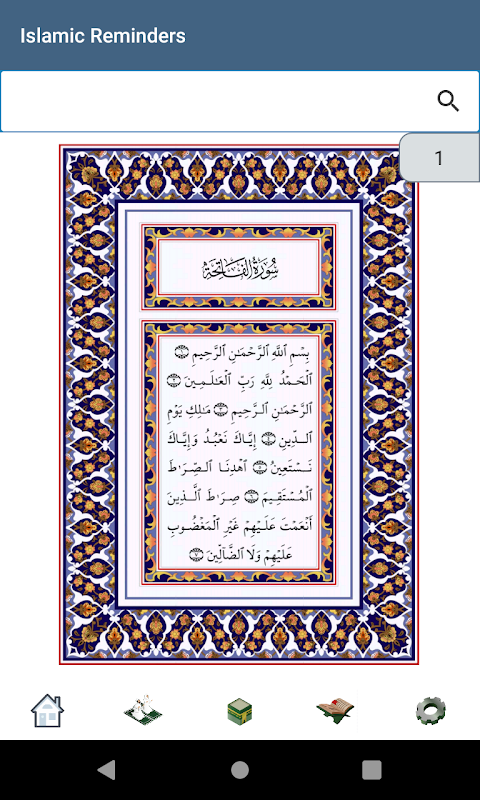 Islamic Reminders
1
سُورَةُ الْفَاتِحَةِ
بِسْمِ ٱللَّهِ ٱلرَّحْمَٰنِ ٱلرَّحِيمِ ۝١
ٱلْحَمْدُ لِلَّهِ رَبِّ ٱلْعَٰلَمِينَ ۝٢
ٱلرَّحْمَٰنِ ٱلرَّحِيمِ ۝٣ مَٰلِكِ يَوْمِ
ٱلدِّينِ ۝٤ إِيَّاكَ نَعْبُدُ وَإِيَّاكَ
نَسْتَعِينُ ۝٥ ٱهْدِنَا ٱلصِّرَٰطَ
ٱلْمُسْتَقِيمَ ۝٦ صِرَٰطَ ٱلَّذِينَ
أَنْعَمْتَ عَلَيْهِمْ غَيْرِ ٱلْمَغْضُوبِ
عَلَيْهِمْ وَلَا ٱلضَّآلِّينَ ۝٧